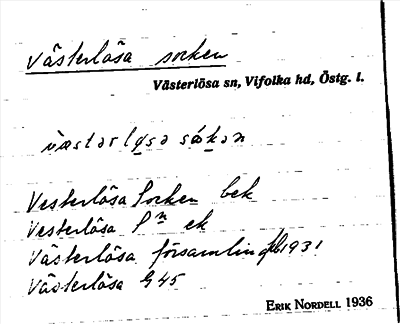 Västerlösa socken
Västerlösa sn, Vifolka hd, Östg. l.
væstərløsə såkən
Vesterlösa Socken bek
Vesterlösa Sn ek
Västerlösa församling 1931
Västerlösa G45
ERIK NORDELL 1936